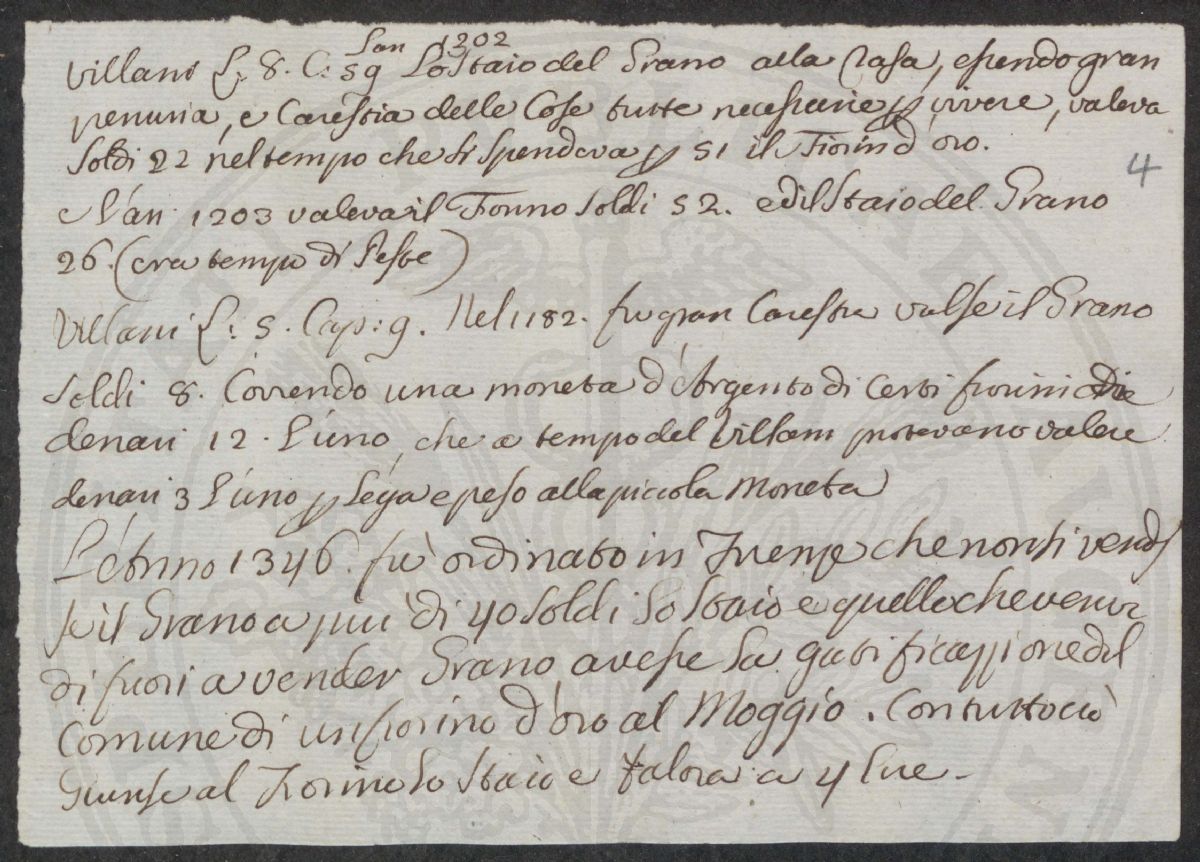 l'an 1302
Villani L. 8. C: 59 Lo Staio del Grano alla Rasa, essendo gran
penuria, e Carestia delle Cose tutte necessarie p vivere, valeva
Soldi 22 nel tempo che si Spendeva p 51 il Fiorin d'oro.
4
e l'an 1303 valeva il Fiorino Soldi 52. ed il Staio del Grano
26. (era tempo di Peste)
Villani L: 5. Cap: 9. Nel 1182. fu gran Carestia valse il Grano
Soldi 8. Correndo una moneta d'Argento di Certi fiorini di
denari 12. L'uno, che a tempo del Villani potevano valere
denari 3 L'uno p Lega e peso alla piccola Moneta
L'Anno 1346. fu ordinato in Firenze che non si vendes
se il Grano a piu di 40 Soldi lo Staio e quello che veniva
di fuori a vender Grano avesse la gratificazzione del
Comune di un fiorino d'oro al Moggio. Con tutto ciò
Giunse al Fiorino lo Staio e talora a 4 Lire-